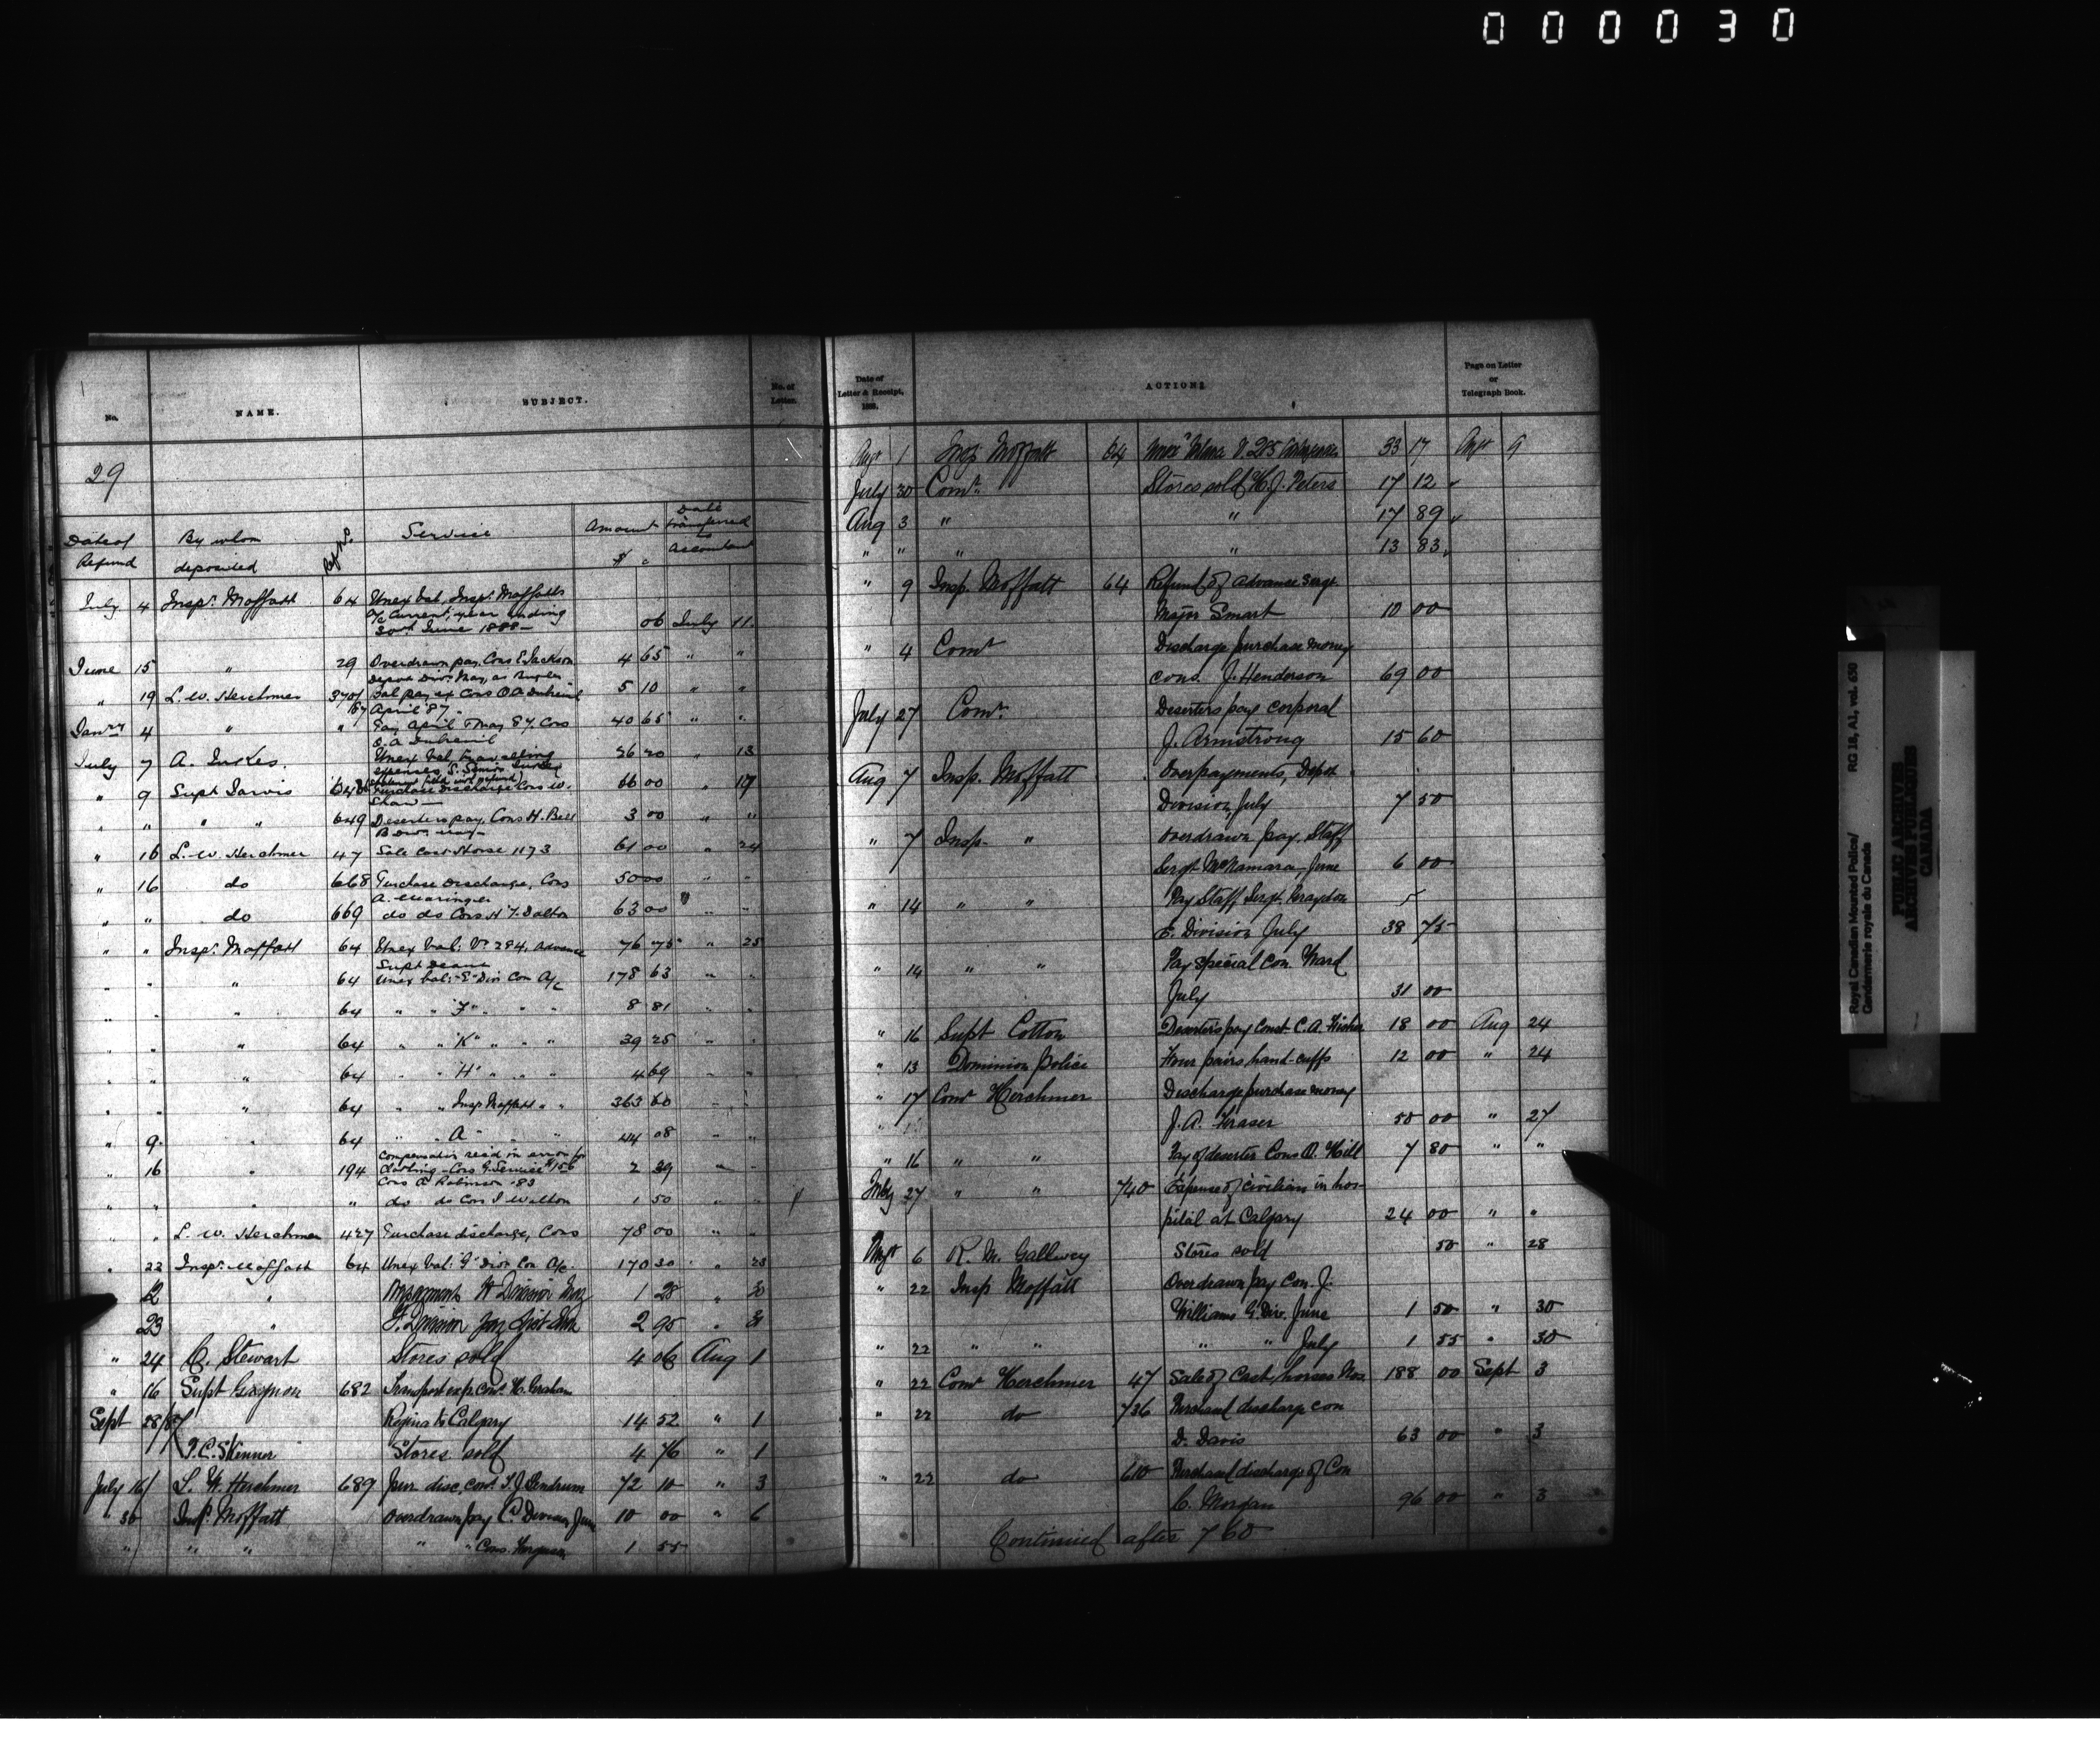 000030
No. NAME. SUBJECT. No. of Letter.
29
Date of Refund By whom deposited Ref No. Service Amount $ c Date transferred to Accountant
July 4 Inspr. Moffatt 64 Unex bal. Inspr. Moffatts
a/c Current, year ending
30th June 1888 — 06 July 11
June 15 " 29 Overdrawn pay, Cons E. Jackson 4 65 " "
Depot Divn. May, as Bugler
" 19 L. W. Herchmer 3701/87 Bal pay ex Cons O. A. Dubreuil 5 10 " "
April 87 -
Janry 4 " " Pay April & May 87. Cons 40 65 " "
O. A. Dubreuil
July 7 A. Jukes. Unex bal, travelling 26 20 " 13
expenses, S. Senior Jukes
" 9 Supt Jarvis 648 Purchase discharge Cons W. 66 00 " 19
Shaw —
" " " " 649 Deserters pay, Cons H. Bell 3 00 " "
B Divn. May -
" 16 L. W. Herchmer 47 Sale Cast Horse 1173 61 00 " 24
" 16 do 668 Purchase Discharge, Cons 50 00 " "
A.
" " do 669 do do Cons H. T. Dalton 63 00 " "
" " Inspr. Moffatt 64 Unex bal: Vr 284, Advance 76 75 " 25
Supt Deane
" " " 64 Unex bal: "E" Div Con A/c 178 63 " "
" " " 64 " " "F" " " 8 81 " "
" " " 64 " " "K" " " " 39 25 " "
" " " 64 " " "H" " " " 4 69 " "
" " " 64 " " Insp Moffatt " " 363 60 " "
" 9 " 64 " " "A" " " 44 08 " "
Compensation recd in error for
" 16 " 194 Clothing - Cons G. Service # 156 2 39 " "
Cons A Robinson .83
" " " " do do Cons J Walton 1 50 " "
" " L. W. Herchmer 427 Purchase discharge, Cons 78 00 " "
" 22 Inspr. Moffatt 64 Unex bal: "G" Divn Con A/c. 170 30 " 23
12 " Division May 1 28 " 30
23 " F. Division 2 95 " 31
" 24 C. Stewart Stores sold 4 06 Aug 1
" 16 Supt Gagnon 682 Transport exp. Const. H. Graham
Sept 28/87 Regina to Calgary 14 52 " 1
T. C. Skinner Stores sold 4 76 " 1
July 16/ L. W. Herchmer 689 pur. disc. Const. T. J. 72 10 " 3
" 30 Insp. Moffatt Overdrawn pay C. Division June 10 00 " 6
" " " " " Cons. Ferguson 1 55
Date of Letter & Receipt, 188 . ACTION: Page on Letter or Telegraph Book.
Augt 1 Insp Moffatt 64 V. 285 33 17 Augt 9
July 30 Comr. Stores sold H. J. Peters 17 12 "
Aug 3 " " 17 89 "
" " " " 13 83 "
" 9 Insp. Moffatt 64 Refund of advance Sergt
Major Smart 10 00
" 4 Comr Discharge purchase money
cons. J. Henderson 69 00
July 27 Comr. Deserters pay corporal
J. Armstrong 15 60
Aug 7 Insp. Moffatt Overpayments, Depot
Division, July 7 50
" 7 Insp. " Overdrawn pay, Staff
Sergt McNamara, June 6 00
" 14 " " Pay Staff Sergt. Braydon
E. Division July 38 75
" 14 " " Pay special Con. Ward
July 31 00
" 16 Supt Cotton Deserters pay Const C. A. Fisher 18 00 Aug 24
" 13 Dominion Police Four pairs hand-cuffs 12 00 " 24
" 17 Comr Herchmer Discharge purchase money
J. A. Fraser 50 00 " 27
" 16 " " Pay of deserter Cons O. Hill 7 80 " "
July 27 " " 740 Expense of civilian in hos-
pital at Calgary 24 00 " "
Augt 6 R. M. Gallwey Stores sold 50 " 28
" 22 Insp Moffatt Overdrawn pay Con. J.
Williams G. Div. June 1 50 " 30
" 22 " " " " July 1 55 " 30
" 22 Comr Herchmer 47 Sale of Cast, horses Nos. 188 00 Sept 3
" 22 do 736 Purchased discharge con
D. Davis 63 00 " 3
" 22 do 610 Purchased discharge of Con
C. Morgan 96 00 " 3
Continued after 760
Royal Canadian Mounted Police/ RG 18, A1, vol. 630
Gendarmerie royale du Canada
PUBLIC ARCHIVES
ARCHIVES PUBLIQUES
CANADA